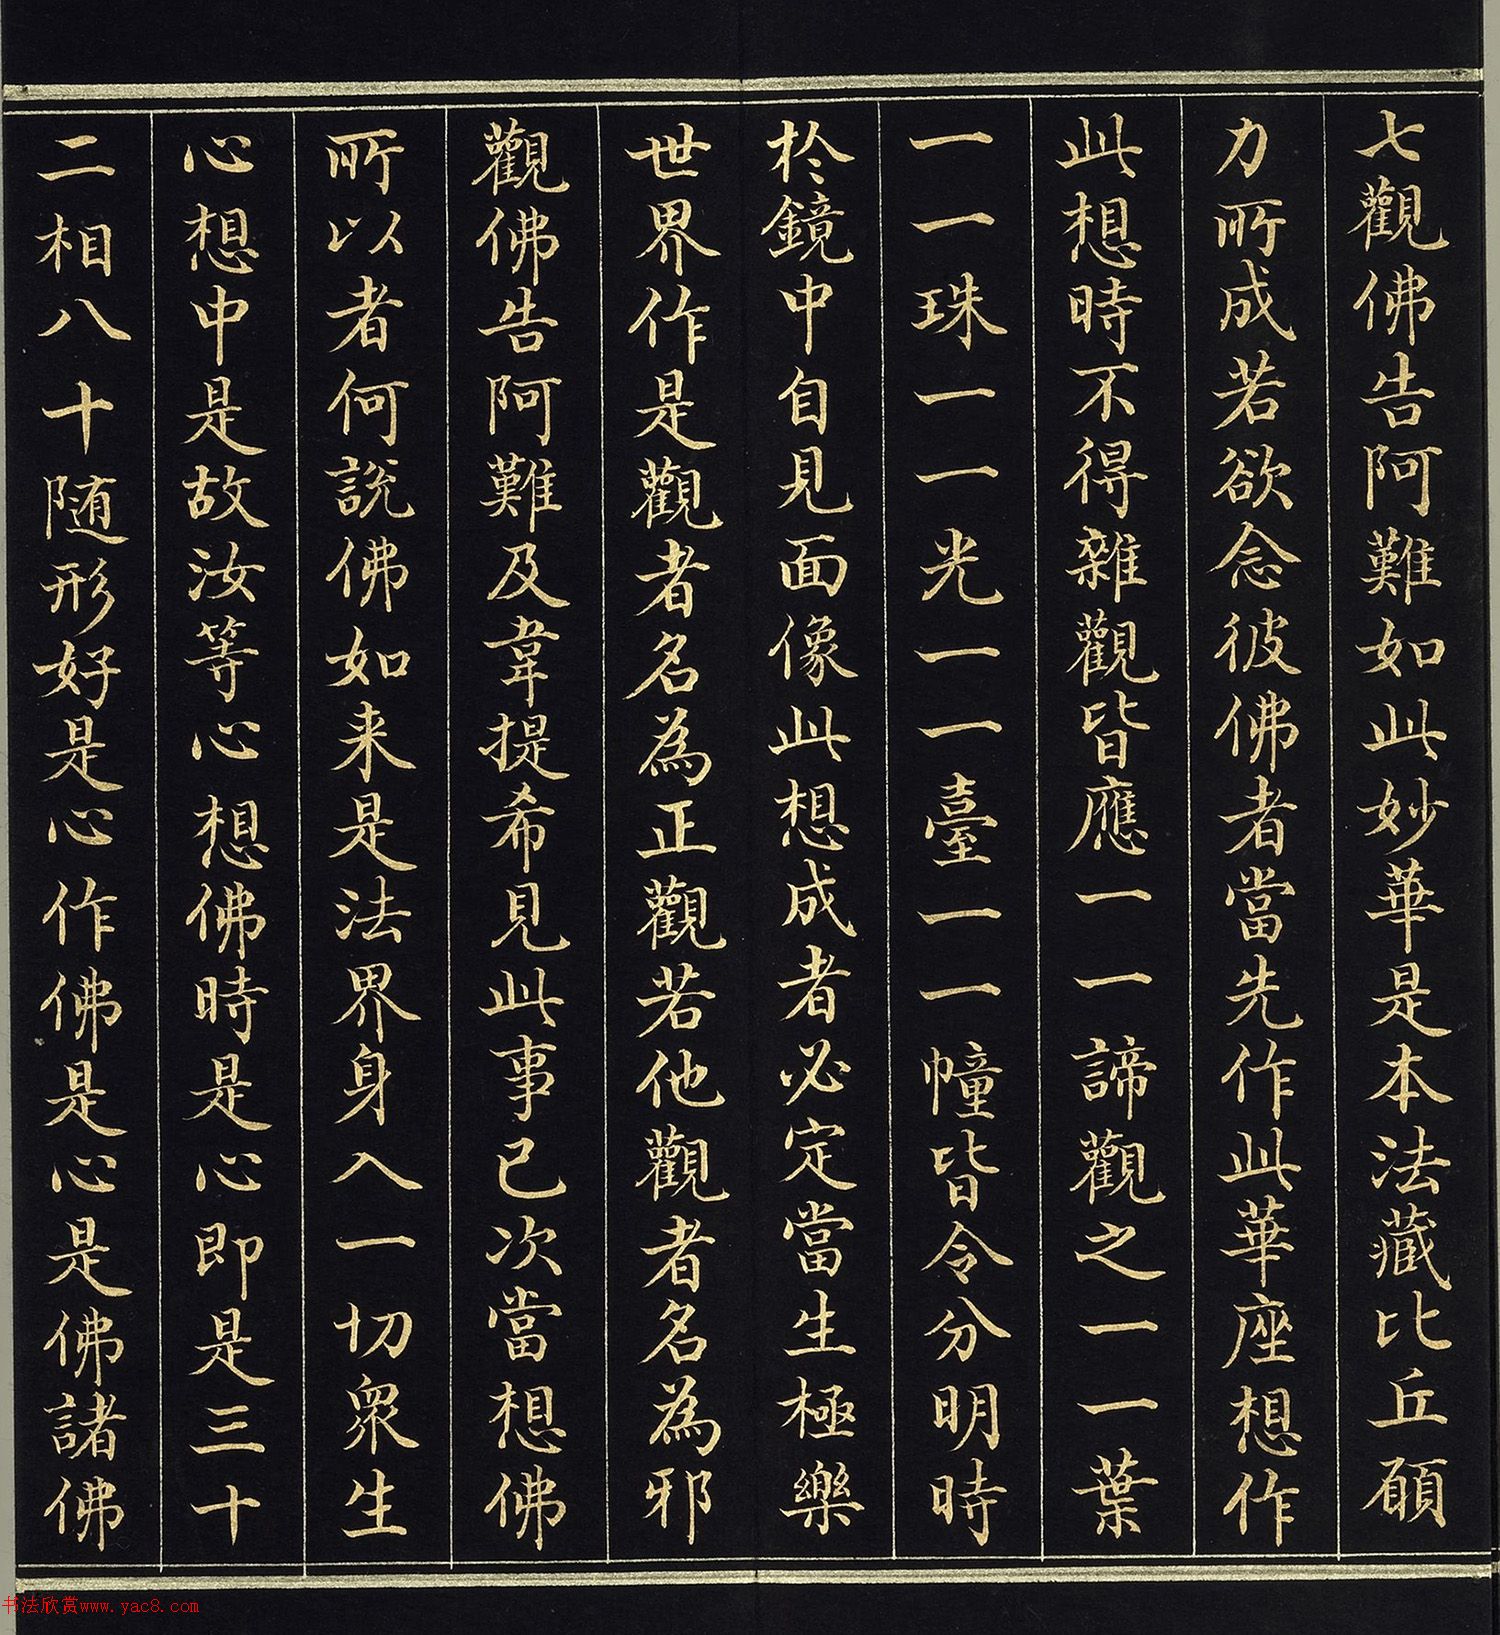 七觀佛告阿難如此妙華是本法藏比丘願
力所成若欲念彼佛者當先作此華座想作
此想時不得雜觀皆應一一諦觀之一一葉
一一珠一一光一一臺一一幢皆令分明時
於鏡中自見面像此想成者必定當生極樂
世界作是觀者名為正觀若他觀者名為邪
觀佛告阿難及韋提希見此事已次當想佛
所以者何說佛如来是法界身入一切眾生
心想中是故汝等心想佛時是心即是三十
二相八十随形好是心作佛是心是佛諸佛
书法欣赏www.yac8.com